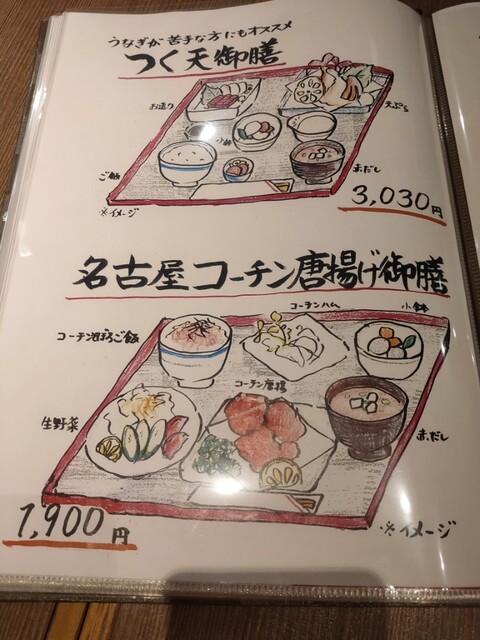 うなぎが苦手な方にもオススメ
つく天御膳
お造り
天ぷら
小鉢
ご飯
赤だし
※イメージ
3,030円
名古屋コーチン唐揚げ御膳
コーチンハム
小鉢
コーチンそぼろご飯
コーチン唐揚
生野菜
赤だし
1,900円
※イメージ